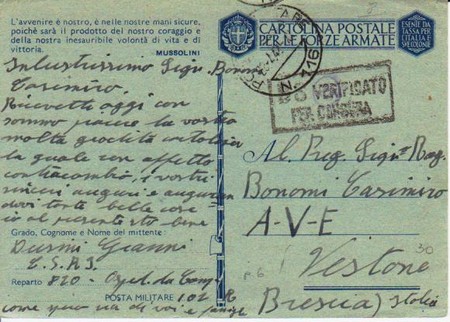 L'avvenire è nostro, è nelle nostre mani sicure,
poichè sarà il prodotto del nostro coraggio e
della nostra inesauribile volontà di vita e di
vittoria.
MUSSOLINI
Casimiro.
Ricevetti oggi con
sommo piacere la vostra
molto gradita cartolina
la quale con affetto
contraccambio, i vostri
sinceri auguri e auguran
dovi tante belle cose
io al presente sto bene
Grado, Cognome e Nome del mittente
Gianni
Reparto 820 Osped. da Campo
POSTA MILITARE 102 R
come spero sia di voi e famige
CARTOLINA POSTALE
PER LE FORZE ARMATE
ESENTE DA
TASSA PER
L'ITALIA E
SPEDIZIONE
VERIFICATO
PER CENSURA
Al Preg. Sign. Rag.
Bonomi Casimiro
A-V-E
Vestone
Brescia) Italia
30
n. 6